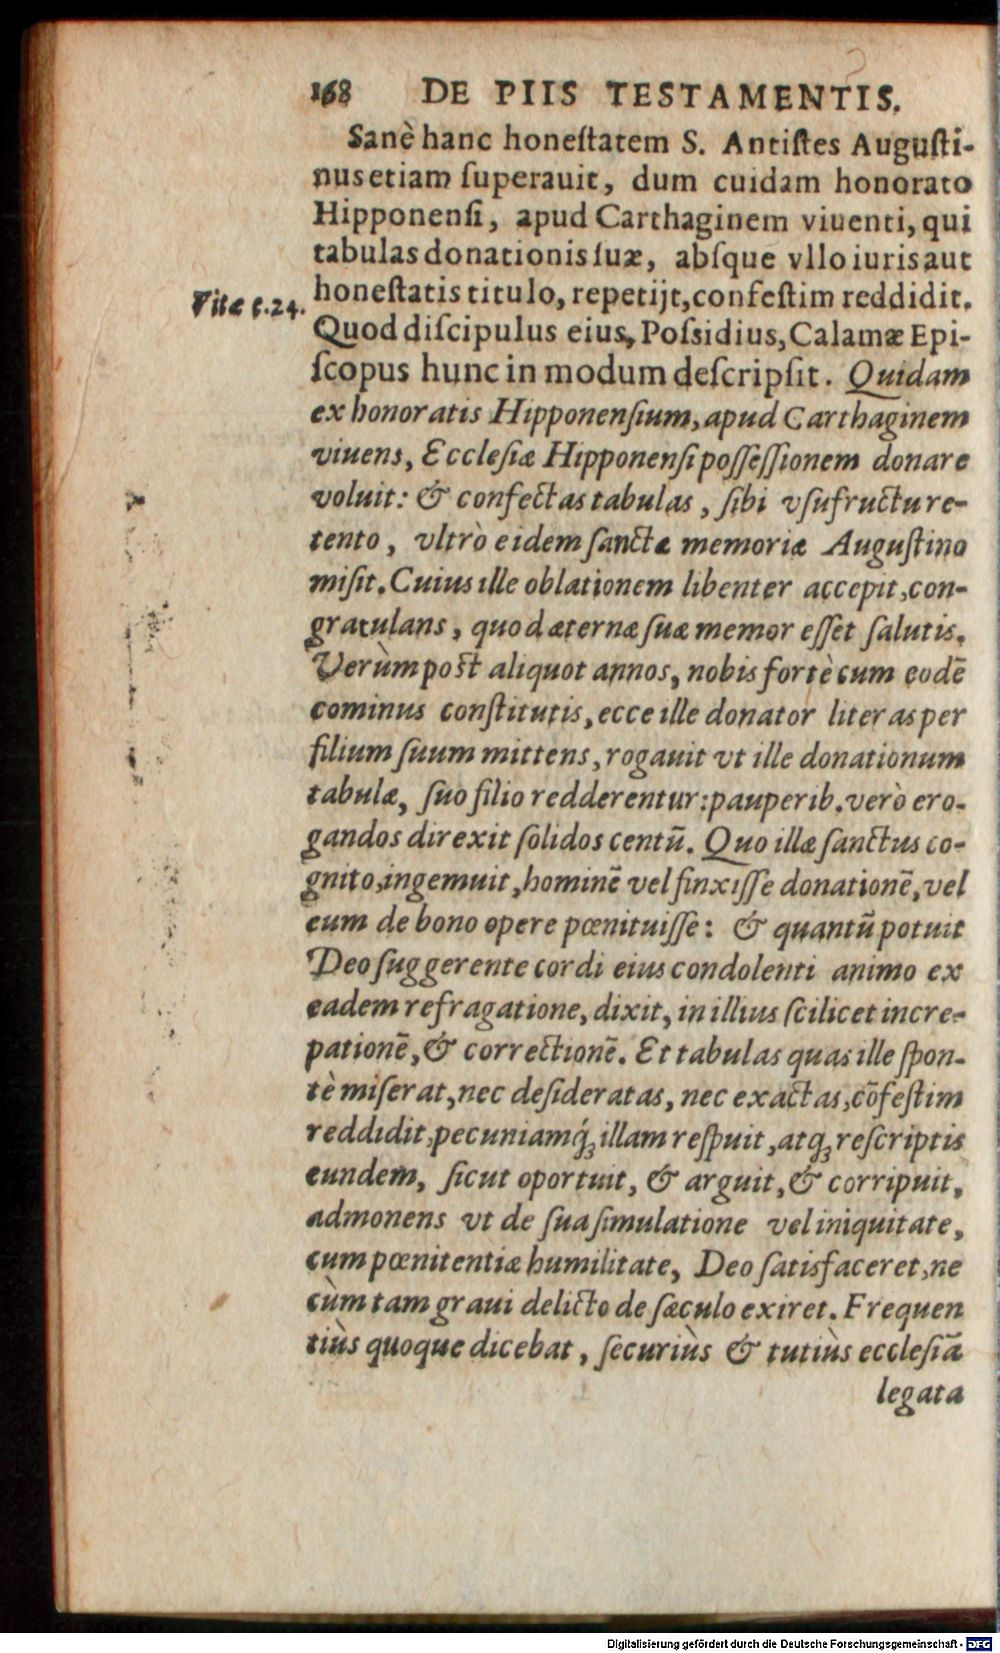 168 DE PIIS TESTAMENTIS.
Sanè hanc honeſtatem S. Antiſtes Auguſti-
nus etiam ſuperauit, dum cuidam honorato
Hipponenſi, apud Carthaginem viuenti, qui
tabulas donationis ſuæ, abſque vllo iuris aut
honeſtatis titulo, repetijt, confeſtim reddidit.
Vitæ c.24.
Quod diſcipulus eius, Poſsidius, Calamæ Epi-
ſcopus hunc in modum deſcripſit. Quidam
ex honoratis Hipponenſium, apud Carthaginem
viuens, Eccleſiæ Hipponenſi poſſeſſionem donare
voluit: & confectas tabulas, ſibi vſufructu re-
tento, vltrò eidem ſanctæ memoriæ Auguſtino
miſit. Cuius ille oblationem libenter accepit, con-
gratulans, quod æternæ ſuæ memor eſſet ſalutis.
Verùm post aliquot annos, nobis fortè cum eodē
cominus conſtitutis, ecce ille donator literas per
filium ſuum mittens, rogauit vt ille donationum
tabulæ, ſuo filio redderentur: pauperib. verò ero-
gandos direxit ſolidos centū. Quo illæ ſanctus co-
gnito, ingemuit, hominē vel finxiſſe donationē, vel
eum de bono opere pœnituiſſe: & quantū potuit
Deo ſuggerente cordi eius condolenti animo ex
eadem refragatione, dixit, in illius ſcilicet incre-
pationē, & correctionē. Et tabulas quas ille ſpon-
tè miſerat, nec deſideratas, nec exactas, cōfeſtim
reddidit, pecuniamq́ꝫ illam reſpuit, atqꝫ reſcriptis
eundem, ſicut oportuit, & arguit, & corripuit,
admonens vt de ſua ſimulatione vel iniquitate,
cum pœnitentiæ humilitate, Deo ſatisfaceret, ne
cùm tam graui delicto de ſæculo exiret. Frequen
tiùs quoque dicebat, ſecuriùs & tutiùs eccleſiā
legata
Digitalisierung gefördert durch die Deutsche Forschungsgemeinschaft - DFG